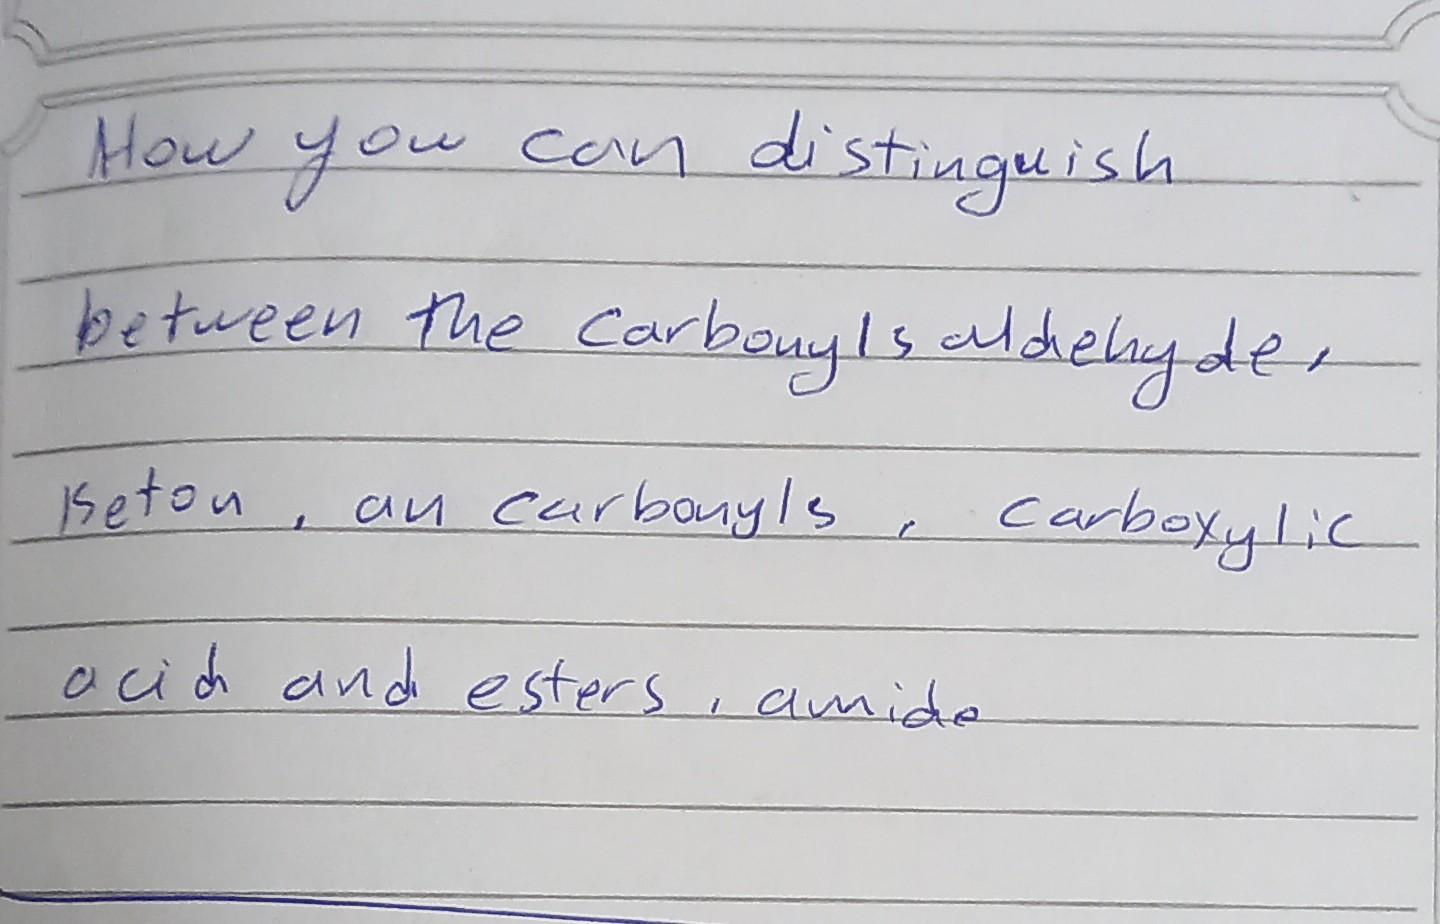 How you can distinguish
between the carbonyls aldehyde,
Keton, an carbonyls, carboxylic
acid and esters, amide